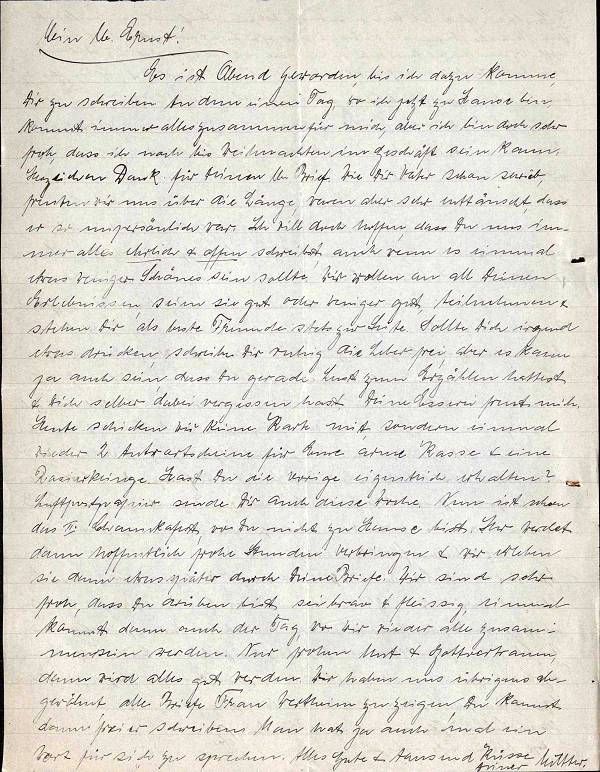 Mein lb. Ernst!
Es ist Abend geworden, bis ich dazu komme,
Dir zu schreiben. An dem einen Tag, wo ich jetzt zu Hause bin,
kommt immer alles zusammen für mich, aber ich bin doch sehr
froh, dass ich noch bis Weihnachten im Geschäft sein kann.
Herzlichen Dank für Deinen lb. Brief. Wie Dir Vater schon schrieb,
freuten wir uns über die Länge, waren aber sehr enttäuscht, dass
er so unpersönlich war. Ich will doch hoffen, dass Du uns im-
mer alles ehrlich & offen schreibst, auch wenn es einmal
etwas weniger Schönes sein sollte. Wir wollen an all Deinen
Erlebnissen, seien sie gut oder weniger gut, teilnehmen &
stehen Dir als beste Freunde stets zur Seite. Sollte Dich irgend
etwas drücken, schreibe Dir ruhig die Leber frei, aber es kann
ja auch sein, dass Du gerade Lust zum Erzählen hattest
& Dich selber dabei vergessen hast. Deine Esserei freut mich.
Heute schicken wir keine Karte mit sondern einmal
wieder 2 Antwortscheine für Eure arme Kasse & eine
Rasierklinge. Hast Du die vorige eigentlich erhalten?
Luftpostpapier sende Dir auch diese Woche. Nun ist schon
das II. Chanukafest, wo Du nicht zu Hause bist. Ihr werdet
dann hoffentlich frohe Stunden verbringen & wir erleben
sie dann etwas später durch Deine Briefe. Wir sind sehr
froh, dass Du drüben bist, sei brav & fleissig, einmal
kommt dann auch der Tag, wo wir wieder alle zusam-
mensein werden. Nur frohen Mut & Gottvertrauen,
dann wird alles gut werden. Wir haben uns übrigens ab-
gewöhnt alle Briefe Frau Wertheim zu zeigen. Du kannst
dann freier schreiben. Man hat ja auch mal ein
Wort für sich zu sprechen. Alles Gute & tausend Küsse
Deiner Mutter.